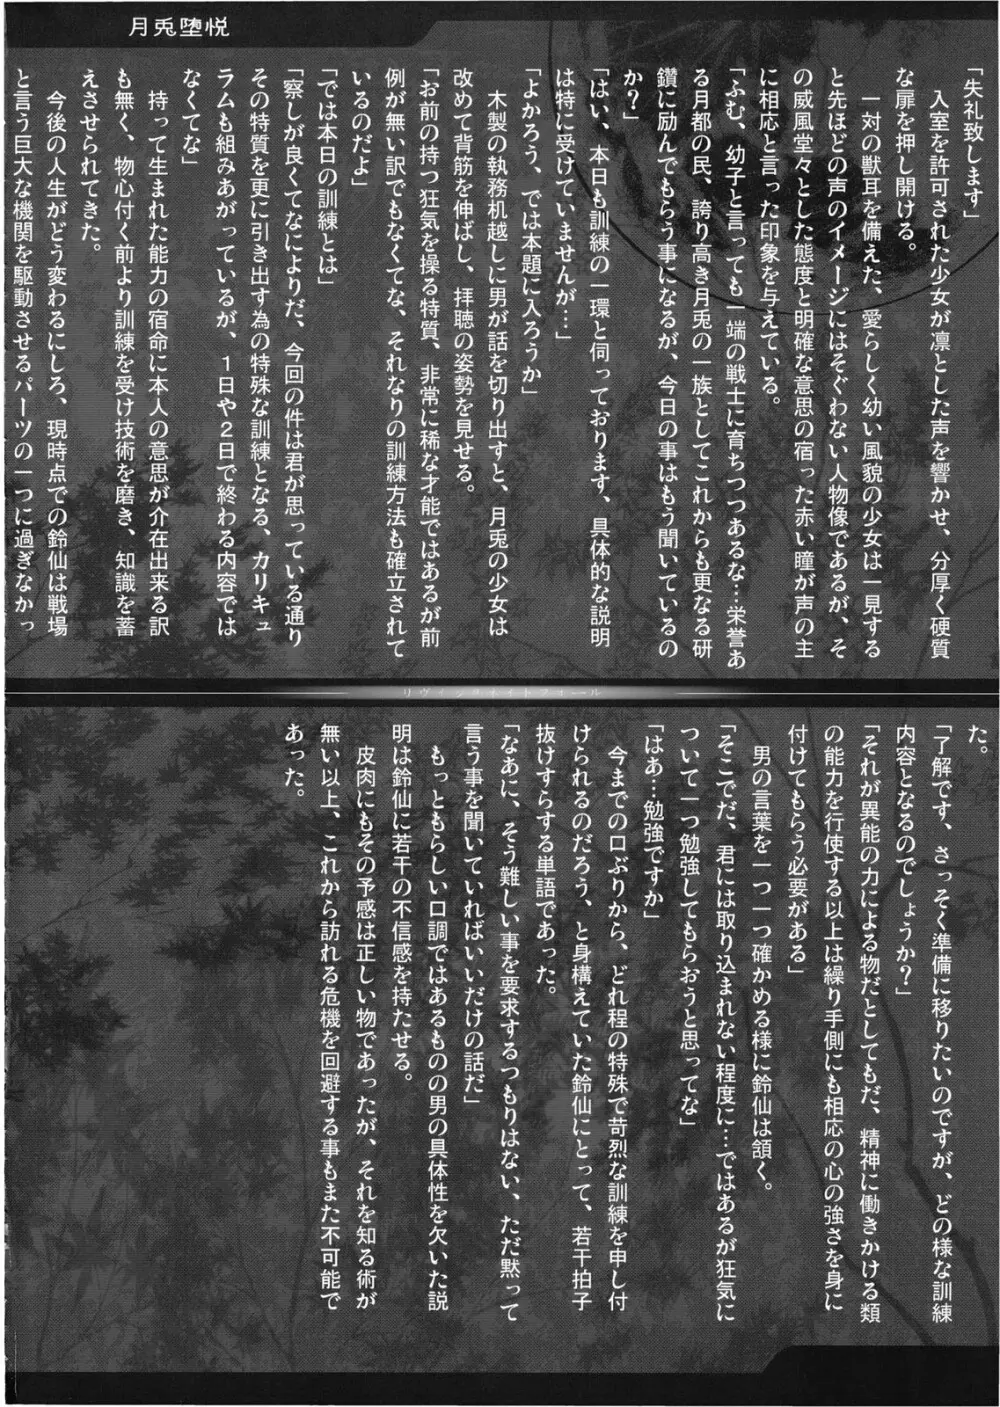 月兎堕悦
「失礼致します」
入室を許可された少女が凛とした声を響かせ、分厚く硬質
な扉を押し開ける。
一対の獣耳を備えた、愛らしく幼い風貌の少女は一見する
と先ほどの声のイメージにはそぐわない人物像であるが、そ
の威風堂々とした態度と明確な意思の宿った赤い瞳が声の主
に相応と言った印象を与えている。
「ふむ、幼子と言っても一端の戦士に育ちつつあるな…栄誉あ
る月都の民、誇り高き月兎の一族としてこれからも更なる研
鑽に励んでもらう事になるが、今日の事はもう聞いているの
か？」
「はい、本日も訓練の一環と伺っております、具体的な説明
は特に受けていませんが…」
「よかろう、では本題に入ろうか」
木製の執務机越しに男が話を切り出すと、月兎の少女は
改めて背筋を伸ばし、拝聴の姿勢を見せる。
「お前の持つ狂気を操る特質、非常に稀な才能ではあるが前
例が無い訳でもなくてな、それなりの訓練方法も確立されて
いるのだよ」
「では本日の訓練とは」
「察しが良くてなによりだ、今回の件は君が思っている通り
その特質を更に引き出す為の特殊な訓練となる、カリキュ
ラムも組みあがっているが、１日や２日で終わる内容では
なくてな」
持って生まれた能力の宿命に本人の意思が介在出来る訳
も無く、物心付く前より訓練を受け技術を磨き、知識を蓄
えさせられてきた。
今後の人生がどう変わるにしろ、現時点での鈴仙は戦場
と言う巨大な機関を駆動させるパーツの一つに過ぎなかっ
た。
「了解です、さっそく準備に移りたいのですが、どの様な訓練
内容となるのでしょうか？」
「それが異能の力による物だとしてもだ、精神に働きかける類
の能力を行使する以上は繰り手側にも相応の心の強さを身に
付けてもらう必要がある」
男の言葉を一つ一つ確かめる様に鈴仙は頷く。
「そこでだ、君には取り込まれない程度に…ではあるが狂気に
ついて一つ勉強してもらおうと思ってな」
「はあ…勉強ですか」
今までの口ぶりから、どれ程の特殊で苛烈な訓練を申し付
けられるのだろう、と身構えていた鈴仙にとって、若干拍子
抜けすらする単語であった。
「なあに、そう難しい事を要求するつもりはない、ただ黙って
言う事を聞いていればいいだけの話だ」
もっともらしい口調ではあるものの男の具体性を欠いた説
明は鈴仙に若干の不信感を持たせる。
皮肉にもその予感は正しい物であったが、それを知る術が
無い以上、これから訪れる危機を回避する事もまた不可能で
あった。